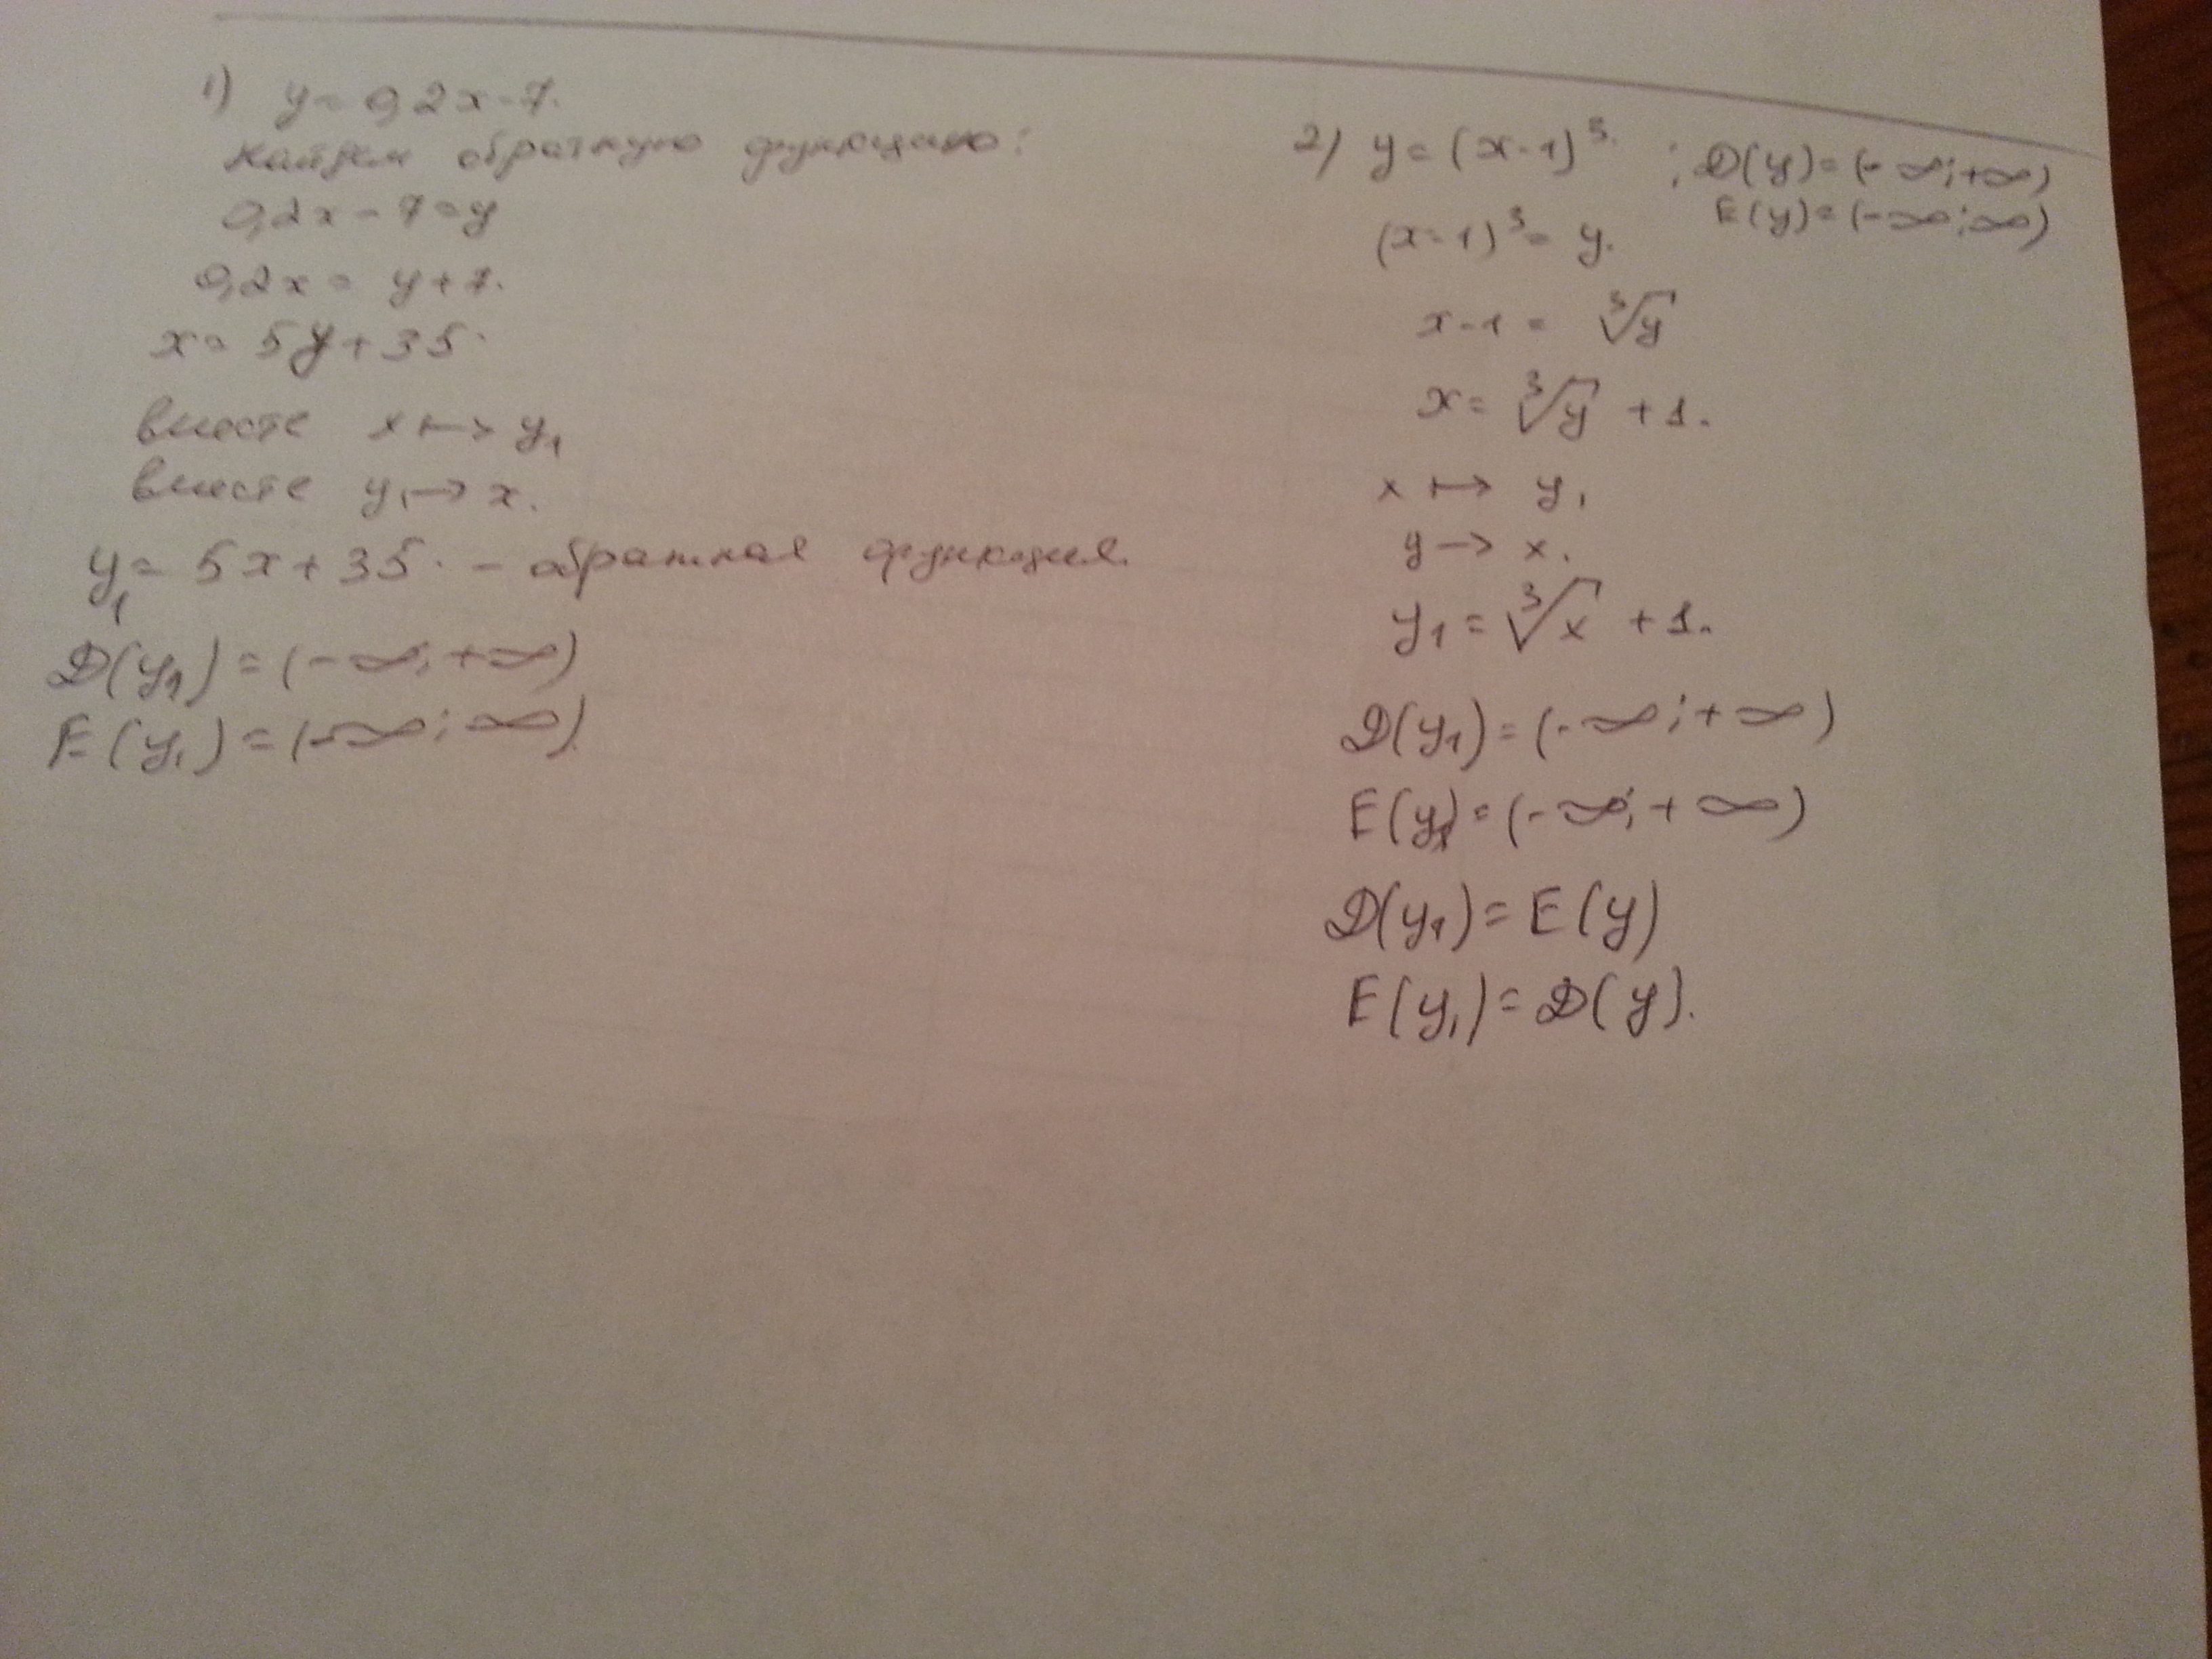 1) y = 0,2x - 7.
Найдем обратную функцию:
0,2x - 7 = y
0,2x = y + 7.
x = 5y + 35.
вместо x ↦ y₁
вместо y ↦ x.
y₁ = 5x + 35. - обратная функция.
D(y₁) = (-∞; +∞)
E(y₁) = (-∞; ∞).
2) y = (x - 1)³. ; D(y) = (-∞; +∞)
E(y) = (-∞; ∞)
(x - 1)³ = y.
x - 1 = ∛y
x = ∛y + 1.
x ↦ y₁
y → x.
y₁ = ∛x + 1.
D(y₁) = (-∞; +∞)
E(y₁) = (-∞; +∞)
D(y₁) = E(y)
E(y₁) = D(y).